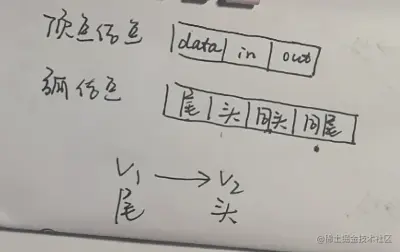 顶点信息
data | in | out
弧信息
尾 | 头 | 同头 | 同尾
V₁ → V₂
尾 头
@稀土掘金技术社区